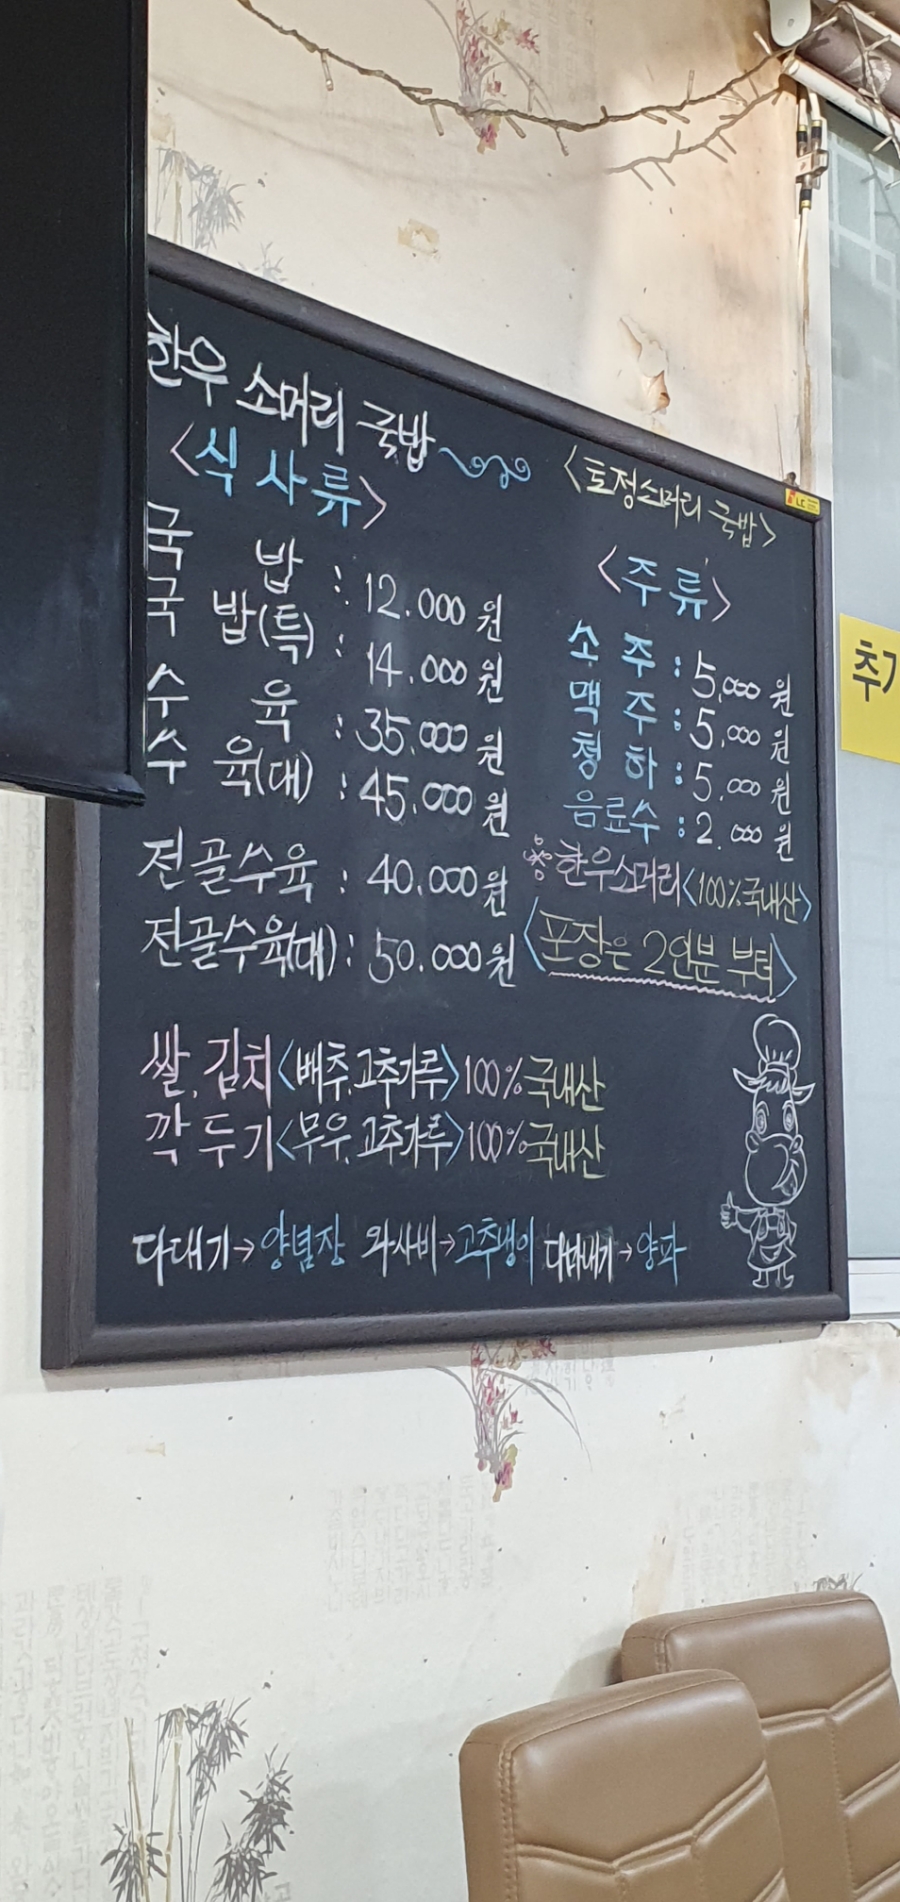 한우 소머리 국밥
<식사류>
국 밥 : 12.000원
국 밥(특) : 14.000원
수 육 : 35.000원
수 육(대) : 45.000원
전골수육 : 40.000원
전골수육(대) : 50.000원
<토정소머리 국밥>
<주류>
소 주 : 5.000원
맥 주 : 5.000원
청 하 : 5.000원
음료수 : 2.000원
※한우소머리<100%국내산>
<포장은 2인분 부터>
쌀, 김치<배추,고추가루>100%국내산
깍두기<무우,고추가루>100%국내산
다대기→양념장 와사비→고추냉이 다마내기→양파
추가